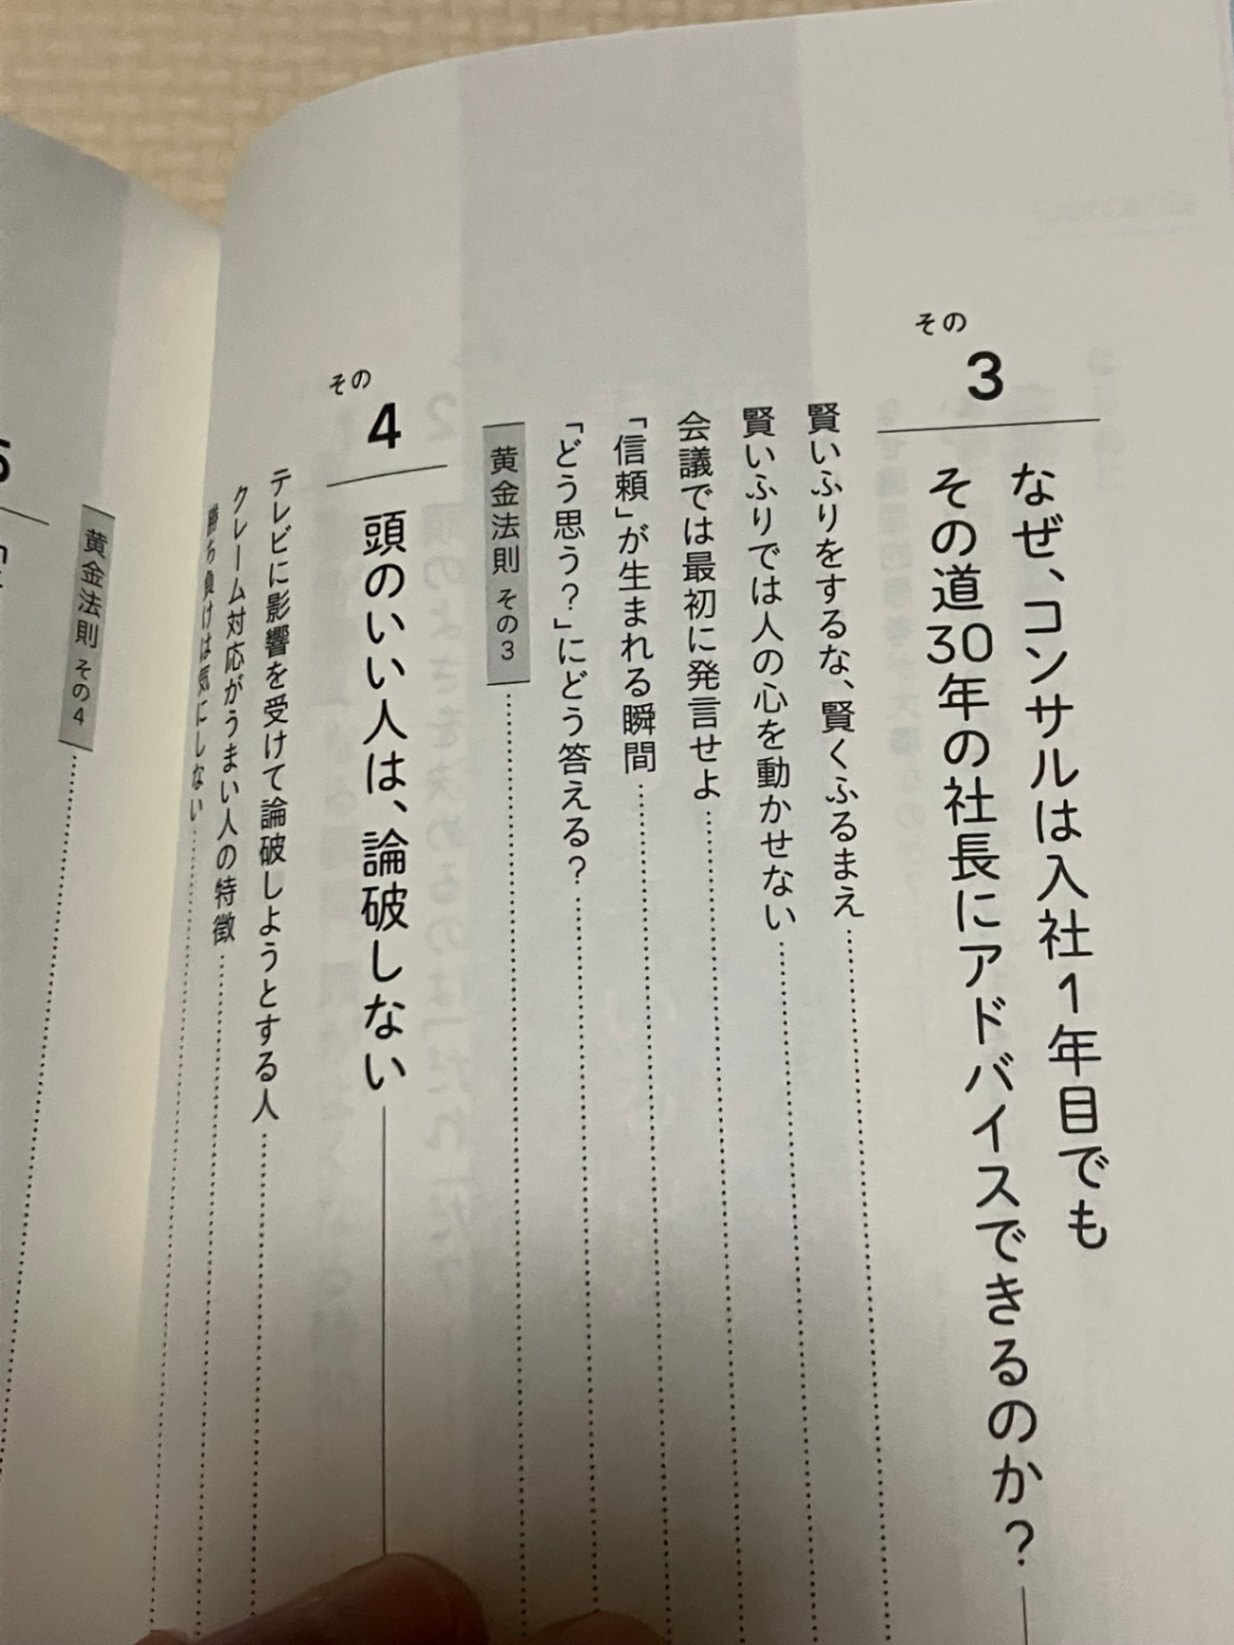 その3
なぜ、コンサルは入社1年目でも
その道30年の社長にアドバイスできるのか?
賢いふりをするな、賢くふるまえ
賢いふりでは人の心を動かせない
会議では最初に発言せよ
「信頼」が生まれる瞬間
「どう思う?」にどう答える?
黄金法則 その3
その4
頭のいい人は、論破しない
テレビに影響を受けて論破しようとする人
クレーム対応がうまい人の特徴
勝ち負けは気にしない
黄金法則 その4